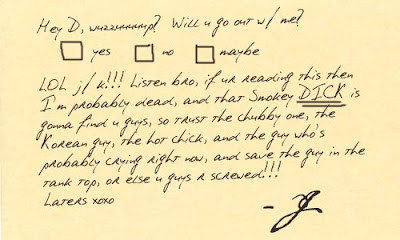 Hey D, wuzzuuuuup? Will u go out w/ me?
yes no maybe
LOL j/k!!! Listen bro, if ur reading this then
I'm probably dead, and that Smokey DICK is
gonna find u guys, so trust the chubby one, the
Korean guy, the hot chick, and the guy who's
probably crying right now, and save the guy in the
tank top, or else u guys r screwed!!!
Laters xoxo
- J